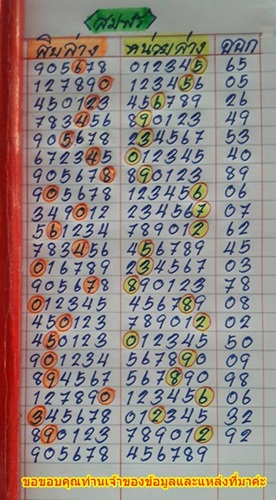 สมพร
สิบล่าง หน่วยล่าง ออก
905678 012345 65
127890 123456 05
450123 456789 26
783456 890123 49
905678 234567 53
672345 012345 40
905678 890123 89
905678 123456 06
349012 234567 07
561234 789012 62
783456 456789 45
016789 234567 03
905678 890123 78
012345 456789 08
450123 789012 02
450123 012345 50
901234 567890 09
894567 567890 98
127890 123456 06
345678 012345 32
890123 789012 92
905678 456789
ขอขอบคุณท่านเจ้าของข้อมูลและแหล่งที่มาค่ะ